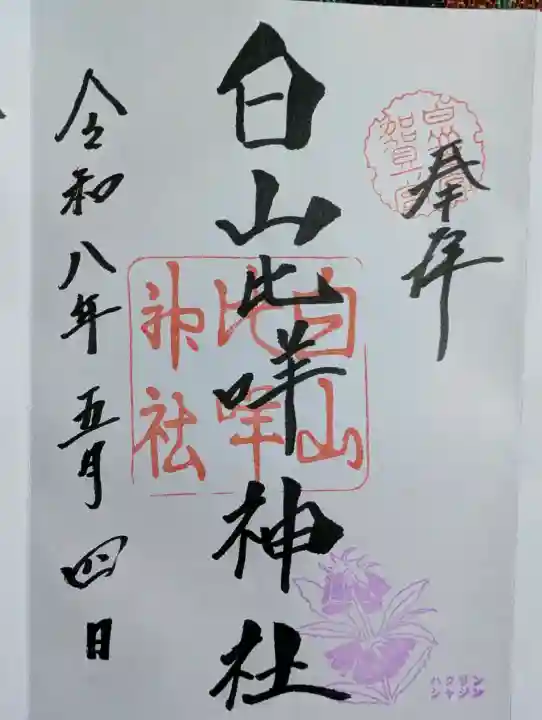 奉拝
白山比咩神社
白山
比咩
神社
令和八年五月四日
ハクサン
シャジン